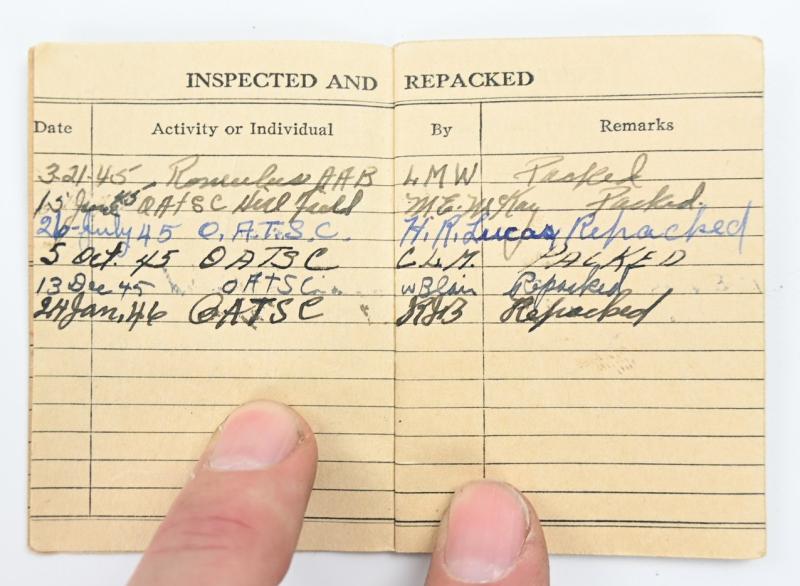 INSPECTED AND REPACKED
Date Activity or Individual By Remarks
3-21-45 Romulus AAB LMW Packed
15 June 45 OATSC Hill Field M.E. McKay Packed.
26-July 45 O.A.T.S.C. H.R. Lucas Repacked
5 Oct. 45 OATSC C.L.M. PACKED
13 Dec 45 OATSC W Blair Repacked
24 Jan. 46 OATSC Repacked